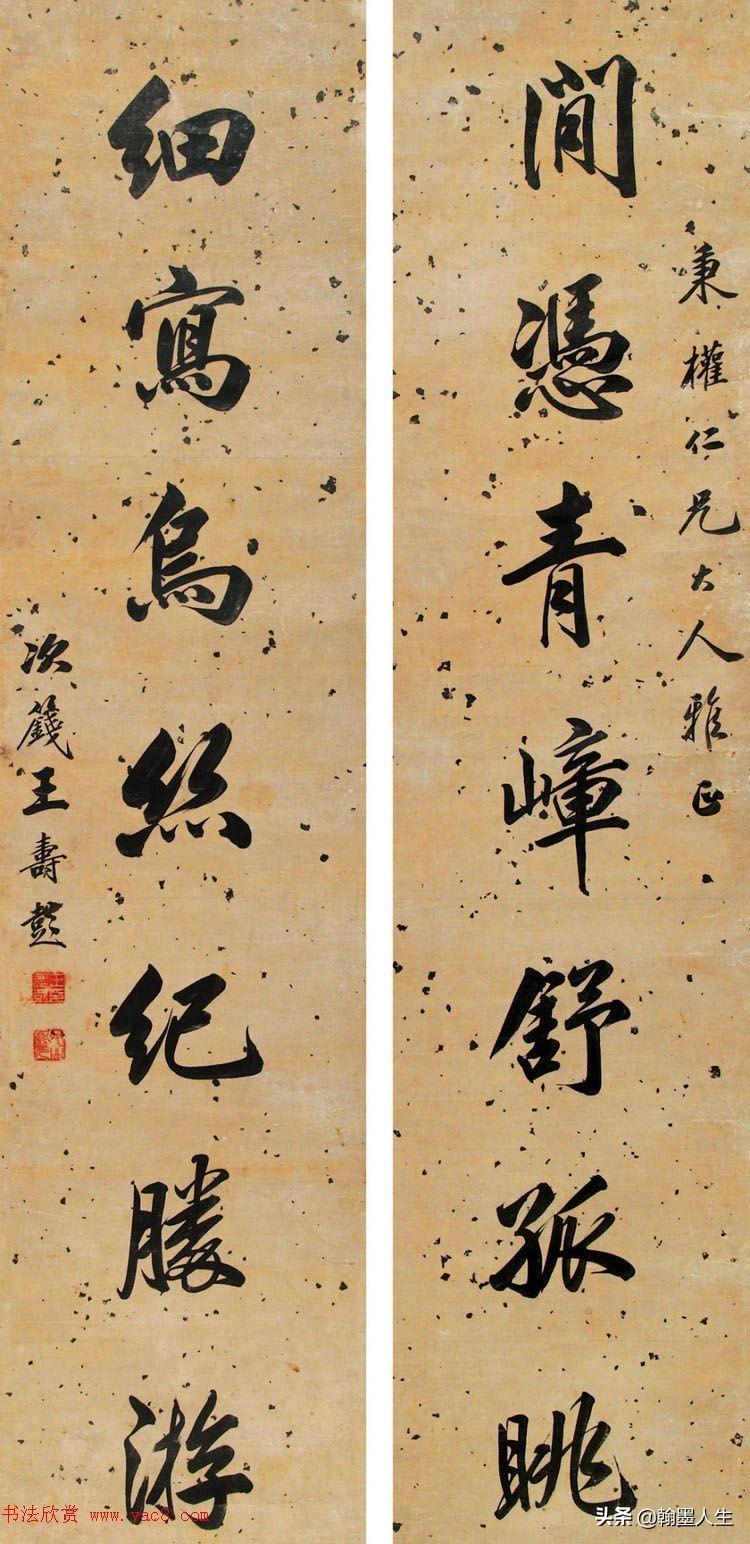 秉權仁兄大人雅正
閒憑青嶂舒孤眺
細寫烏絲紀勝游
次籛王壽彭
书法欣赏 www.yac8.com
头条 @翰墨人生